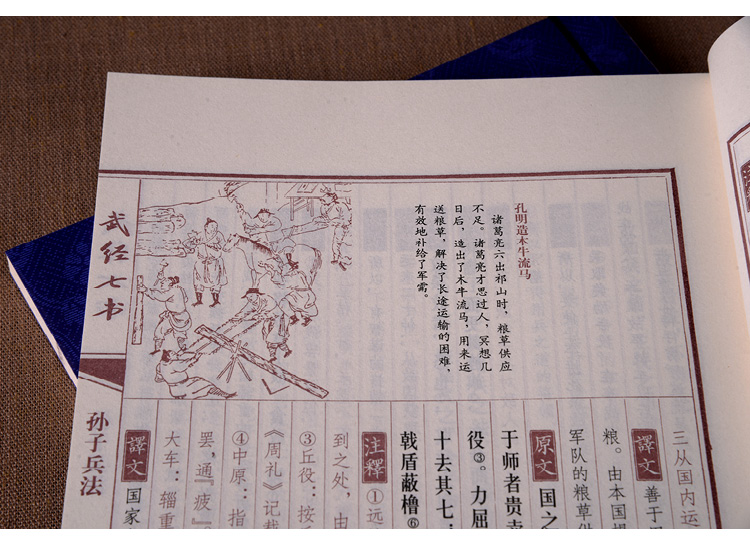 孔明造木牛流马
诸葛亮六出祁山时，粮草供应
不足。诸葛亮才思过人，冥想几
日后，造出了木牛流马，用来运
送粮草，解决了长途运输的困难，
有效地补给了军需。
三从国内运
譯文 善于
粮。由本国
军队的粮草供
原文 国之
于师者贵卖
役③。力屈
十去其七；
戟盾蔽橹⑥
注釋 ①远
到之处，由
③丘役：按
《周礼》记载
④中原：指
罢，通『疲』。
大车：辎重
譯文 国家
武经七书
孙子兵法